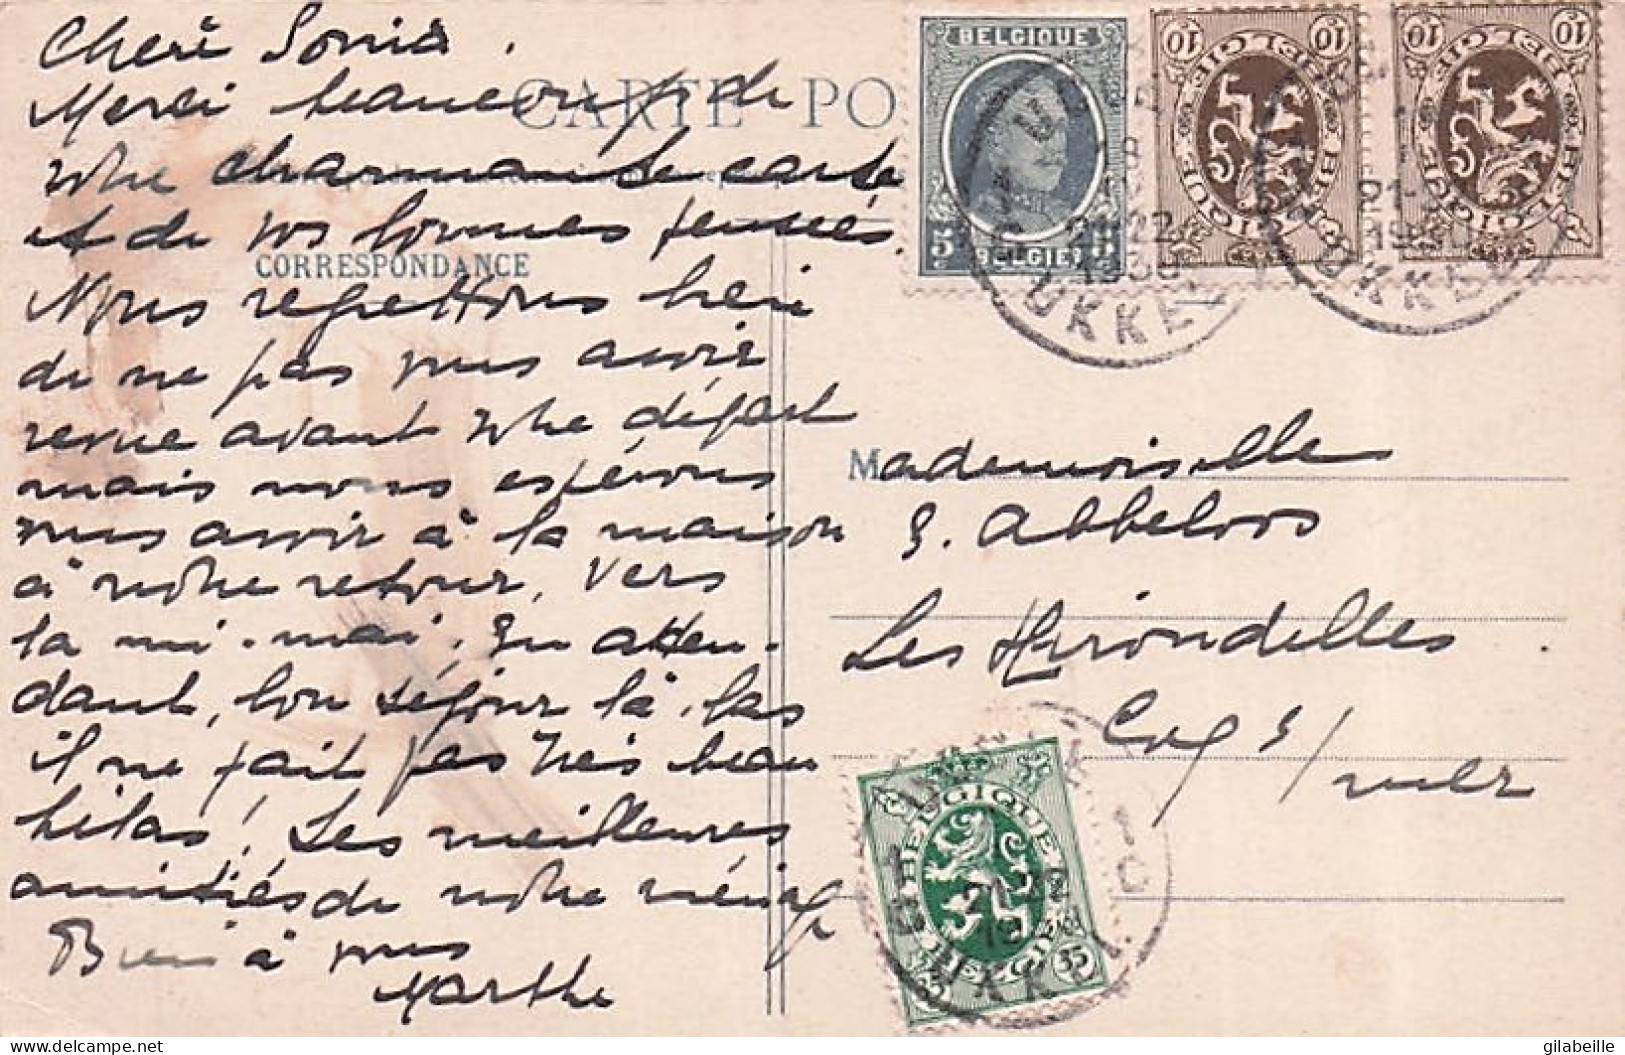 Cheré Sonia.
CARTE PO
Merci beaucoup de
votre charmante carte
et de vos bonnes pensées.
CORRESPONDANCE
Nous regrettons bien
de ne pas vous avoir
revue avant votre départ
mais nous espérons
vous avoir à la maison
à notre retour, vers
la mi-mai. En atten-
dant, bon séjour là-bas
il ne fait pas très beau
hélas! Les meilleures
amitiés de notre ménage
à vous
Marthe
BELGIQUE
5 5
BELGIË
10 10
BELGIE
BELGIQUE
10 10
BELGIE
BELGIQUE
1930
UKKEL
1930
UKKEL
Mademoiselle
S. Abbeloos
Les Hirondelles
Coq s/mer
BELGIQUE
BELGIE
35 35
UKKEL
delcampe.net
gilabeille